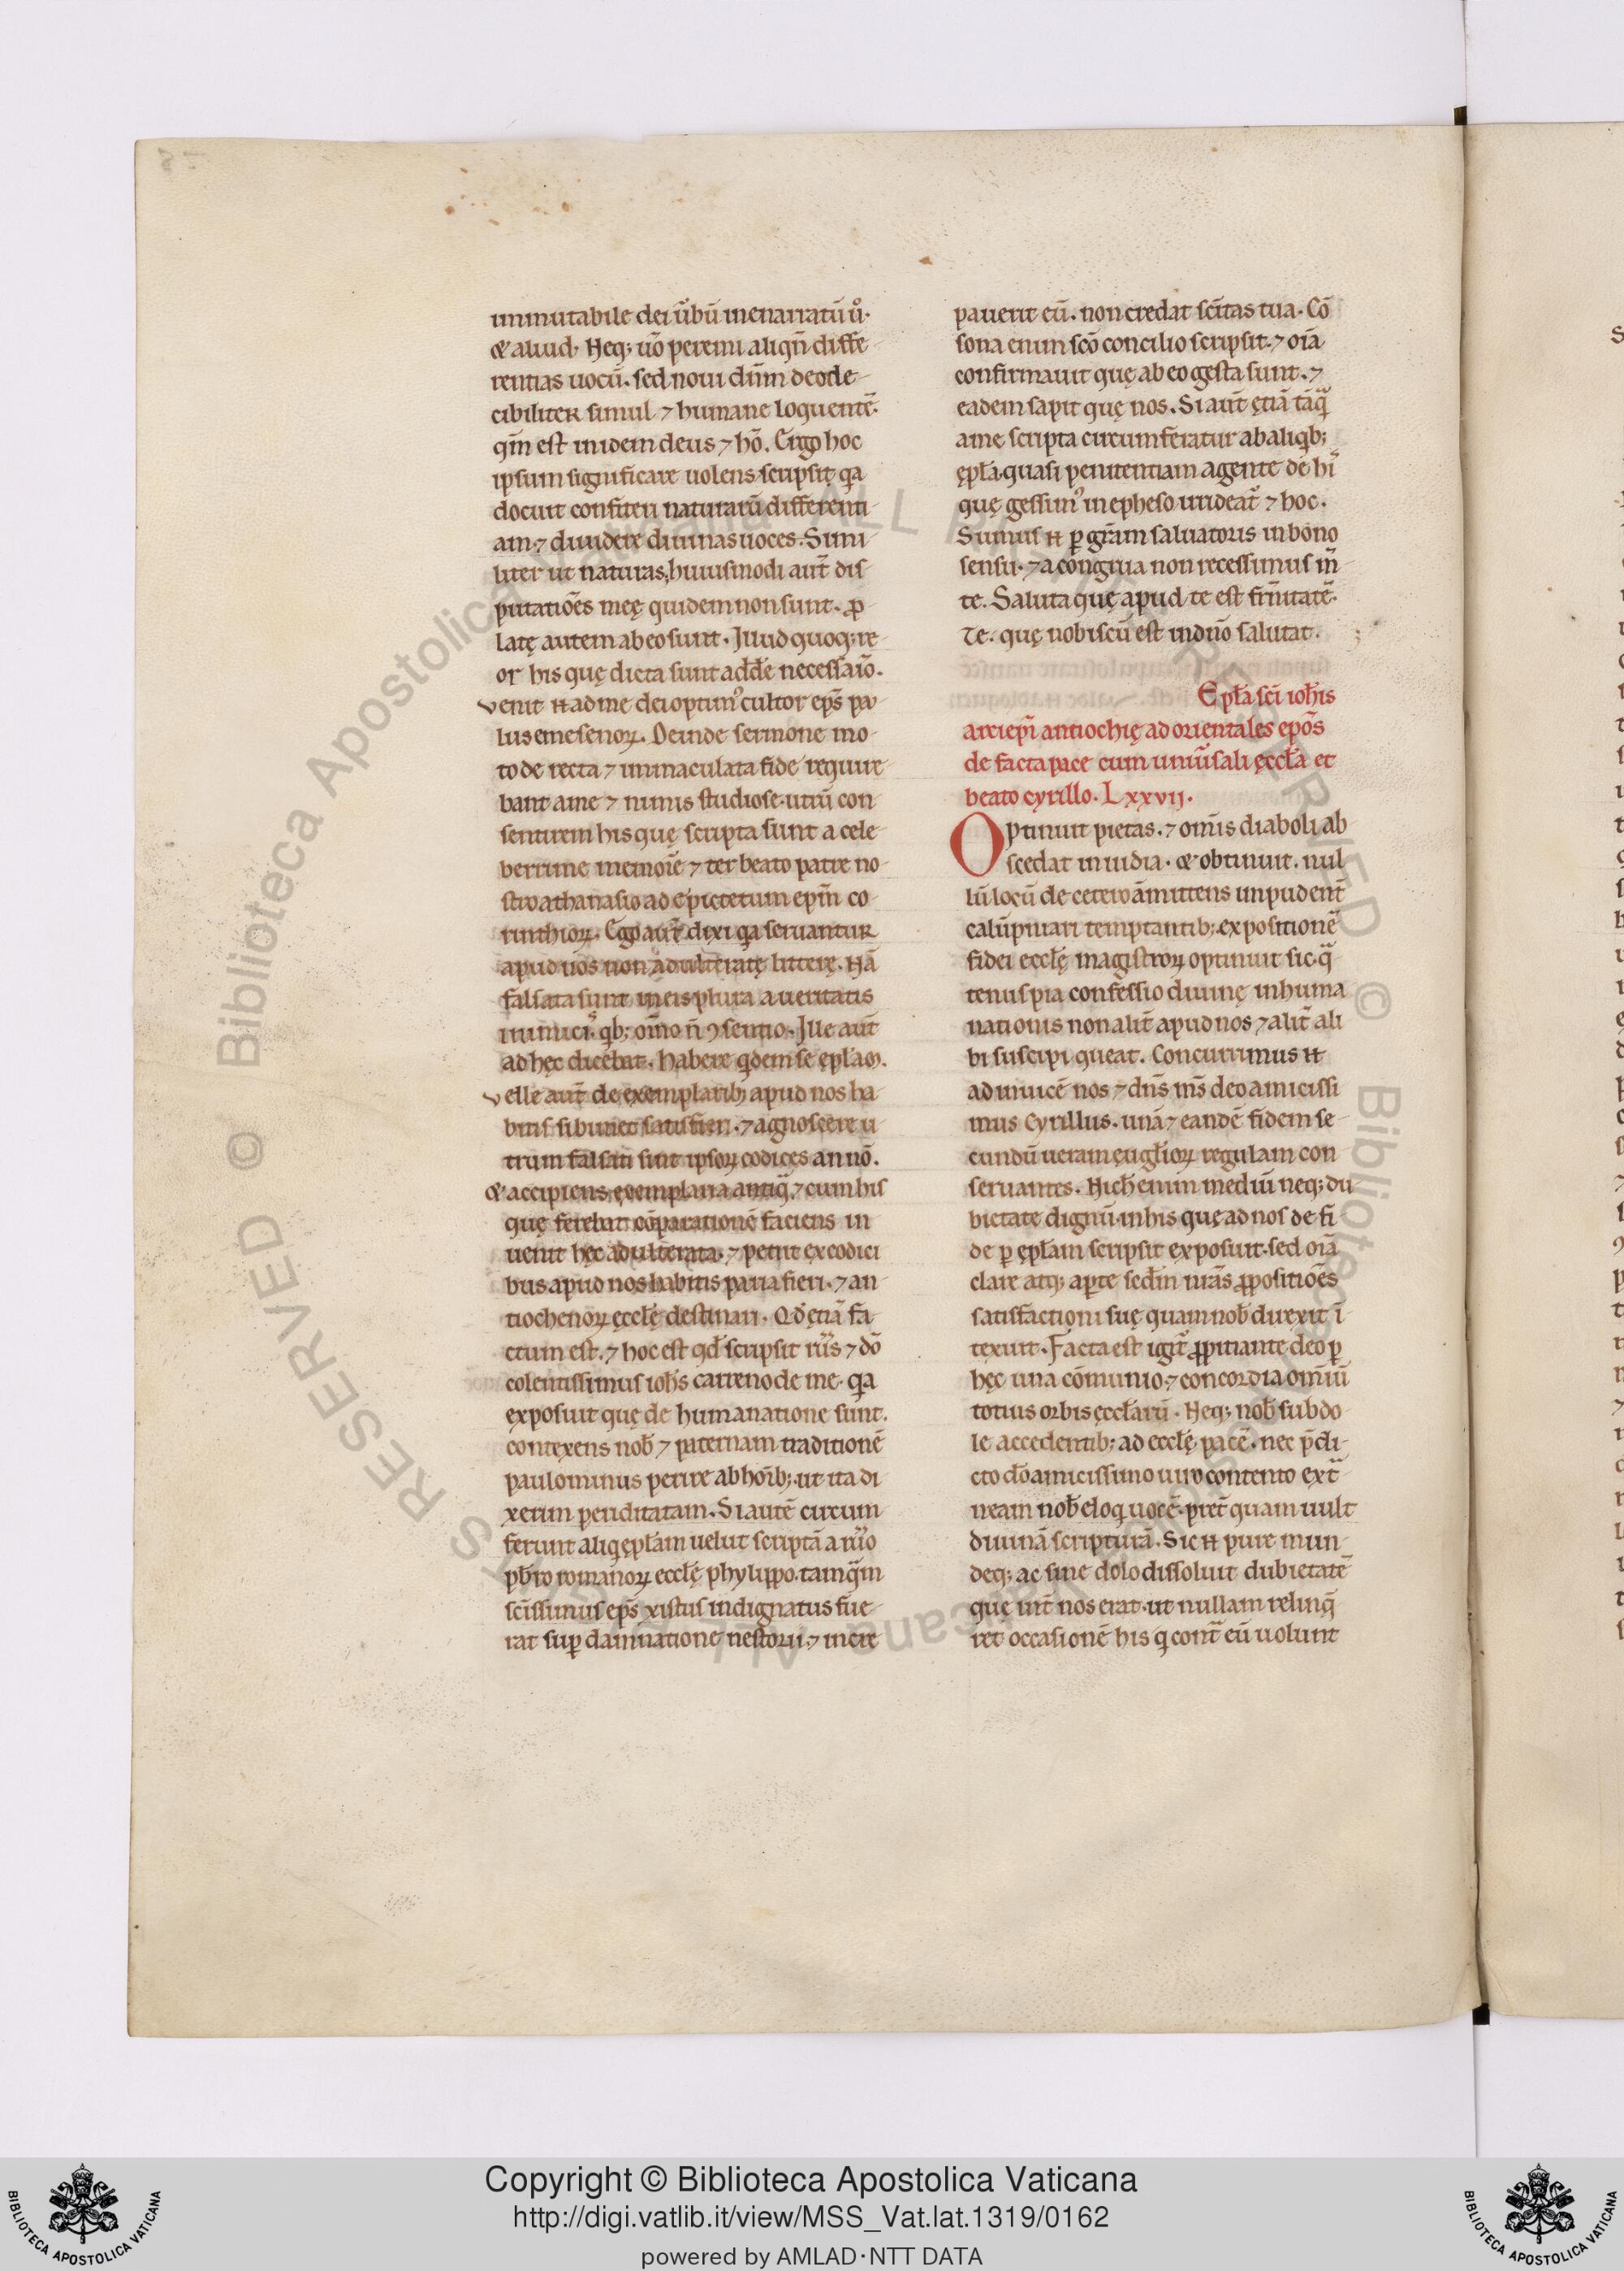 immutabile dei ũbũ inenarratũ ů.
& aliud. Neq; ũo peremi aliqñ diffe-
rentias uocũ. sed noui dñm deode-
cibiliter simul ⁊ humane loquentẽ.
qm̃ est in idem deus ⁊ hõ. Ergo hoc
ipsum significare uolens scripsit. qa
docuit confiteri naturarũ differenti-
am. ⁊ diuidere diuinas uoces. Simi-
liter ut naturas, huiusmodi aut̃ dis-
putatiões meę quidem non sunt. ꝓ-
latę autem ab eo sunt. Illud quoq; re-
or his quę dicta sunt addẽ necessariõ.
venit n̄ ad me dei optim' cultor ep̃s pau
lus emesenoꝝ. Deinde sermone mo-
to de recta ⁊ inmaculata fide require-
bant a me ⁊ nimis studiose. utrũ con
sentirem his quę scripta sunt a cele-
berrime memorie ⁊ ter beato patre no-
stro athanasio ad epictetum epm̃ co-
rinthioꝝ. Ego aut̃ dixi qa seruantur
apud uos non adulteratę litterę. Nã
falsata sunt in eis plura a ueritatis
inimicis. qb; oĩno ñ ꝯsentio. Ille aut̃
ad hęc dicebat. habere qdem se ep̃lam.
velle aut̃ de exemplarib; apud nos ha-
bitis sibimet satisfieri. ⁊ agnoscere u-
trum falsati sint ipsoꝝ codices an nõ.
& accipiens exemplaria antiq. ⁊ cum his
quę ferebat cõparationẽ faciens in
uenit hęc adulterata. ⁊ petiit ex codici
bus apud nos habitis paria fieri. ⁊ an
tiochenoꝝ ęcclę destinari. Qd etiã fa-
ctum est. ⁊ hoc est qd scripsit rũs ⁊ dõ
colentissimus iohs carreno de me. qa
exposuit quę de humanatione sunt.
contexens nob ⁊ paternam traditionẽ
paulominus perire ab hoĩb; . ut ita di
xerim periditatam. Si autẽ circum
ferunt aliq ep̃lam uelut scriptã a rũo
pbro romanoꝝ ecclę phylippo. tamqm
scĩssimus ep̃s xistus indignatus fue-
rat sup damnatione nestorii. ⁊ incre
pauerit eũ. non credat scĩtas tua. Cõ
sona enim scõ concilio scripsit. ⁊ oĩa
confirmauit quę ab eo gesta sunt. ⁊
eadem sapit quę nos. Si aut̃ ętiã tãq
a me scripta circumferatur ab aliqb;
ęp̃la. quasi penitentiam agente de hi
quę gessim' in epheso irrideat̃ ⁊ hoc.
Sumus n̄ p grãm saluatoris in bono
sensu. ⁊ a congrua non recessimus m̃
te. Saluta quę apud te est frñitatẽ.
Te. quę nobiscũ est in dño salutat.
Ep̃la scĩ iohĩs
arciep̃i antiochię ad orientales ep̃os
de facta pace cum uniũsali ęccła et
beato cyrillo. Lxxvij.
Optinuit pietas. ⁊ om̃is diaboli ab
scedat inuidia. & obtinuit. nul
lũ locũ de cetero ãmittens inpudent̃
calũpniari temptantib; expositionẽ
fidei ecclę magistroꝝ optinuit sic. q
tenus pia confessio diuinę inhuma
nationis non alit̃ apud nos ⁊ alit̃ ali
bi suscipi queat. Concurrimus n̄
ad inuicẽ nos ⁊ dñs m̃s deo amicissi
mus Cyrillus. unã ⁊ eandẽ fidem se-
cundũ ueram euglioꝝ regulam con
seruantes. Nich enim mediũ neq; du
bietate dignũ. in his que ad nos de fi
de p ep̃lam scripsit exposuit. sed oĩa
clare atq; apte scdm uirãs ꝓpositiões
satisfactioni suę quam nob direxit ĩ
texuit. Facta est igit̃ ꝓpitiante deo p
hęc una cõmunio. ⁊ concordia omniũ
totius orbis ęccłarũ. Neq; nob subdo-
le accedentib; ad ecclę pacẽ. nec p̃di-
cto dõ amicissimo uiro contento ext̃
neam nob eloq uocẽ. pret̃ quam uult
diuinã scripturã. Sic n̄ pure mun-
deq; ac sine dolo dissoluit dubietatẽ
que int̃ nos erat. ut nullam relinq
ret occasionẽ his q cont̃ eũ uolunt
© Biblioteca Apostolica Vaticana ALL RIGHTS RESERVED © Biblioteca Apostolica Vaticana ALL RIGHTS RESERVED
Copyright © Biblioteca Apostolica Vaticana
http://digi.vatlib.it/view/MSS_Vat.lat.1319/0162
powered by AMLAD·NTT DATA
BIBLIOTECA APOSTOLICA VATICANA
BIBLIOTECA APOSTOLICA VATICANA